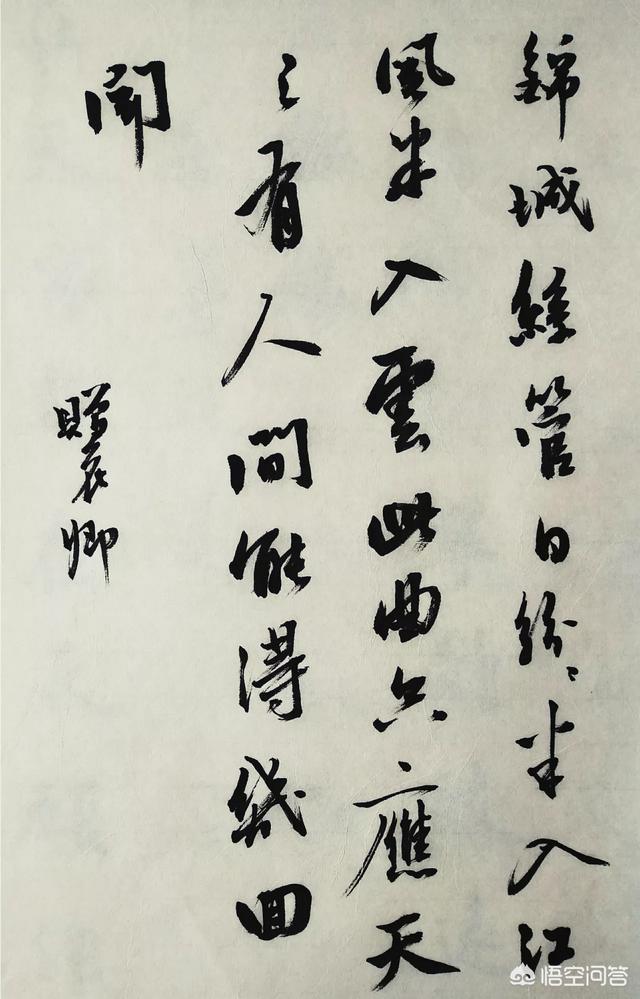 錦城絲管日紛〻半入江
風半入雲此曲只應天
上有人間能得幾回
聞
贈花卿
悟空问答